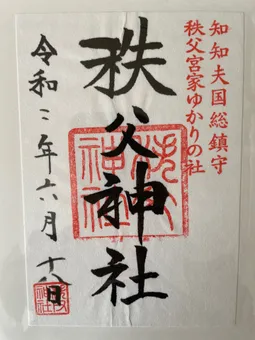 知知夫国総鎮守
秩父宮家ゆかりの社
秩父神社
令和二年六月十八日
秩父神社